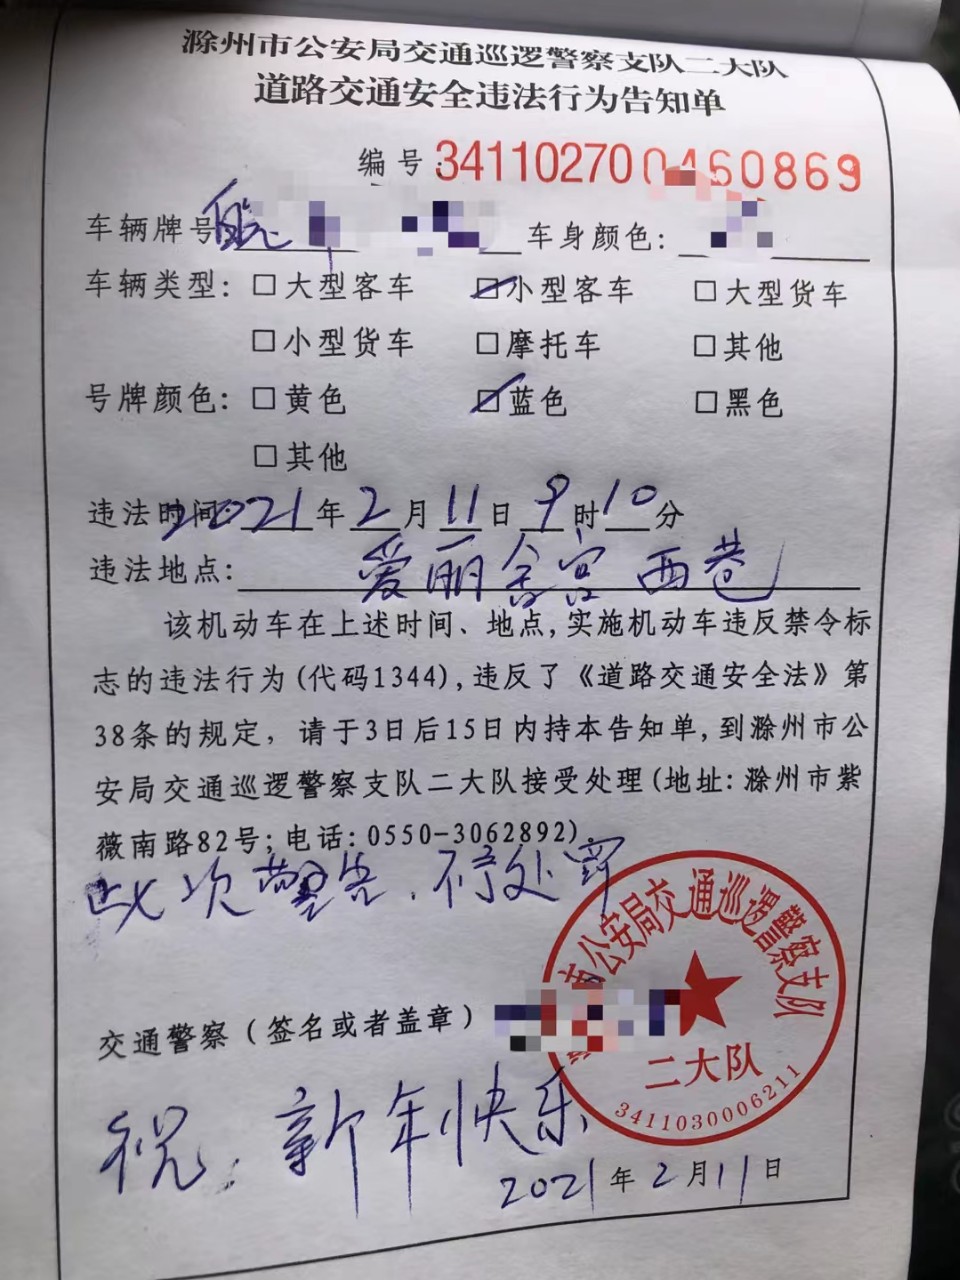 滁州市公安局交通巡逻警察支队二大队
道路交通安全违法行为告知单
编号:3411027000460869
车辆牌号 皖 车身颜色:
车辆类型: □大型客车 ☑小型客车 □大型货车
□小型货车 □摩托车 □其他
号牌颜色: □黄色 ☑蓝色 □黑色
□其他
违法时间: 2021年2月11日9时10分
违法地点: 爱丽舍宫西巷
该机动车在上述时间、地点,实施机动车违反禁令标
志的违法行为(代码1344),违反了《道路交通安全法》第
38条的规定，请于3日后15日内持本告知单,到滁州市公
安局交通巡逻警察支队二大队接受处理(地址:滁州市紫
薇南路82号;电话:0550-3062892)。
此次警告、不予处罚
市公安局交通巡逻警察支队
交通警察（签名或者盖章）
二大队
3411030006211
祝：新年快乐
2021年2月11日